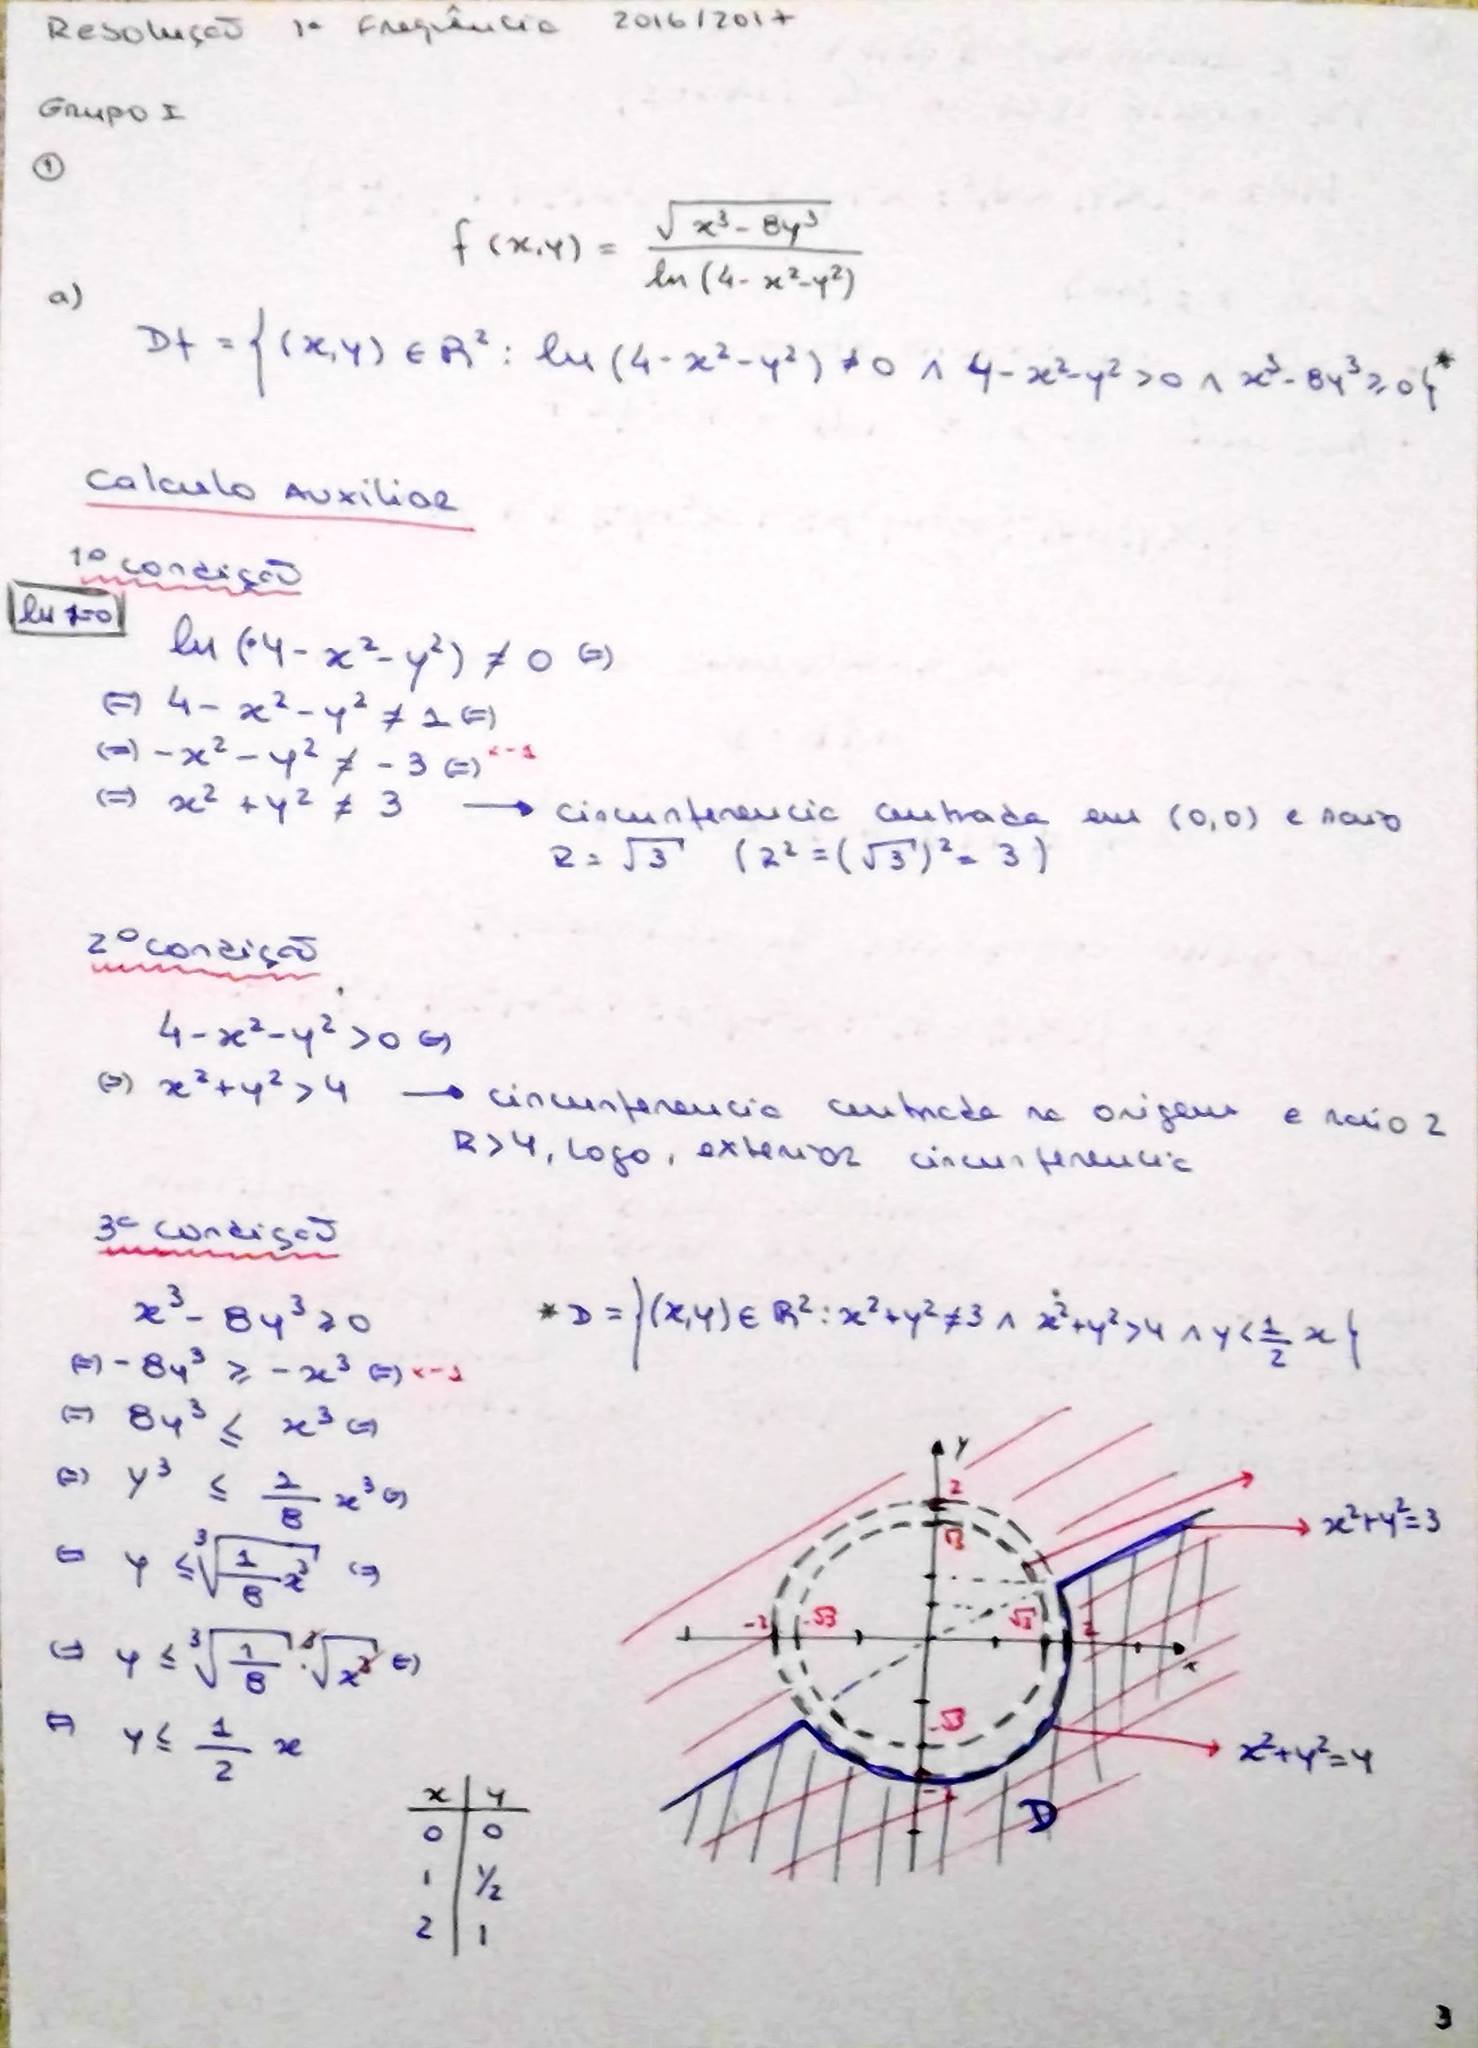 Resolução 1ª Frequência 2016/2017
Grupo I
①
f(x,y) = √(x³-8y³) / ln(4-x²-y²)
a)
Df = {(x,y) ∈ R²: ln(4-x²-y²) ≠ 0 ∧ 4-x²-y²>0 ∧ x³-8y³≥0}*
Calculo Auxiliar
1º condição
ln 1=0
ln(4-x²-y²) ≠ 0 (=)
(=) 4-x²-y² ≠ 1 (=)
(=) -x²-y² ≠ -3 (=) ×-1
(=) x²+y² ≠ 3 → circunferencia centrada em (0,0) e raio
R=√3 (R²=(√3)²=3)
2º condição
4-x²-y²>0 (=)
(=) x²+y²>4 → circunferencia centrada na origem e raio 2
R>4, logo, exterior circunferencia
3ª condição
x³-8y³≥0
*D = {(x,y) ∈ R²: x²+y²≠3 ∧ x²+y²>4 ∧ y<1/2 x}
(=) -8y³ ≥ -x³ (=) ×-1
(=) 8y³ ≤ x³ (=)
(=) y³ ≤ 1/8 x³ (=)
(=) y ≤ ³√(1/8 x³) (=)
(=) y ≤ ³√(1/8) · ³√(x³) (=)
(=) y ≤ 1/2 x
x y
0 0
1 1/2
2 1
y
2
√3
x²+y²=3
-2 -√3 √3 2
x
-√3
-2
x²+y²=4
D
3